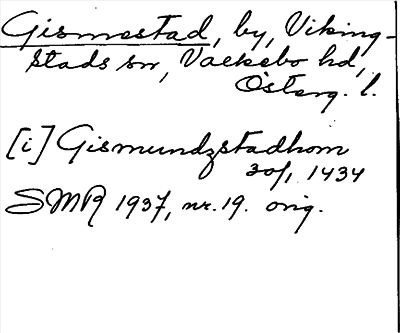 Gismestad, by, Viking-
stads sn, Vackebo hd,
Österg. l.
[i] Gismundzstadhom
30/1 1434
SMR 1937, nr. 19. orig.